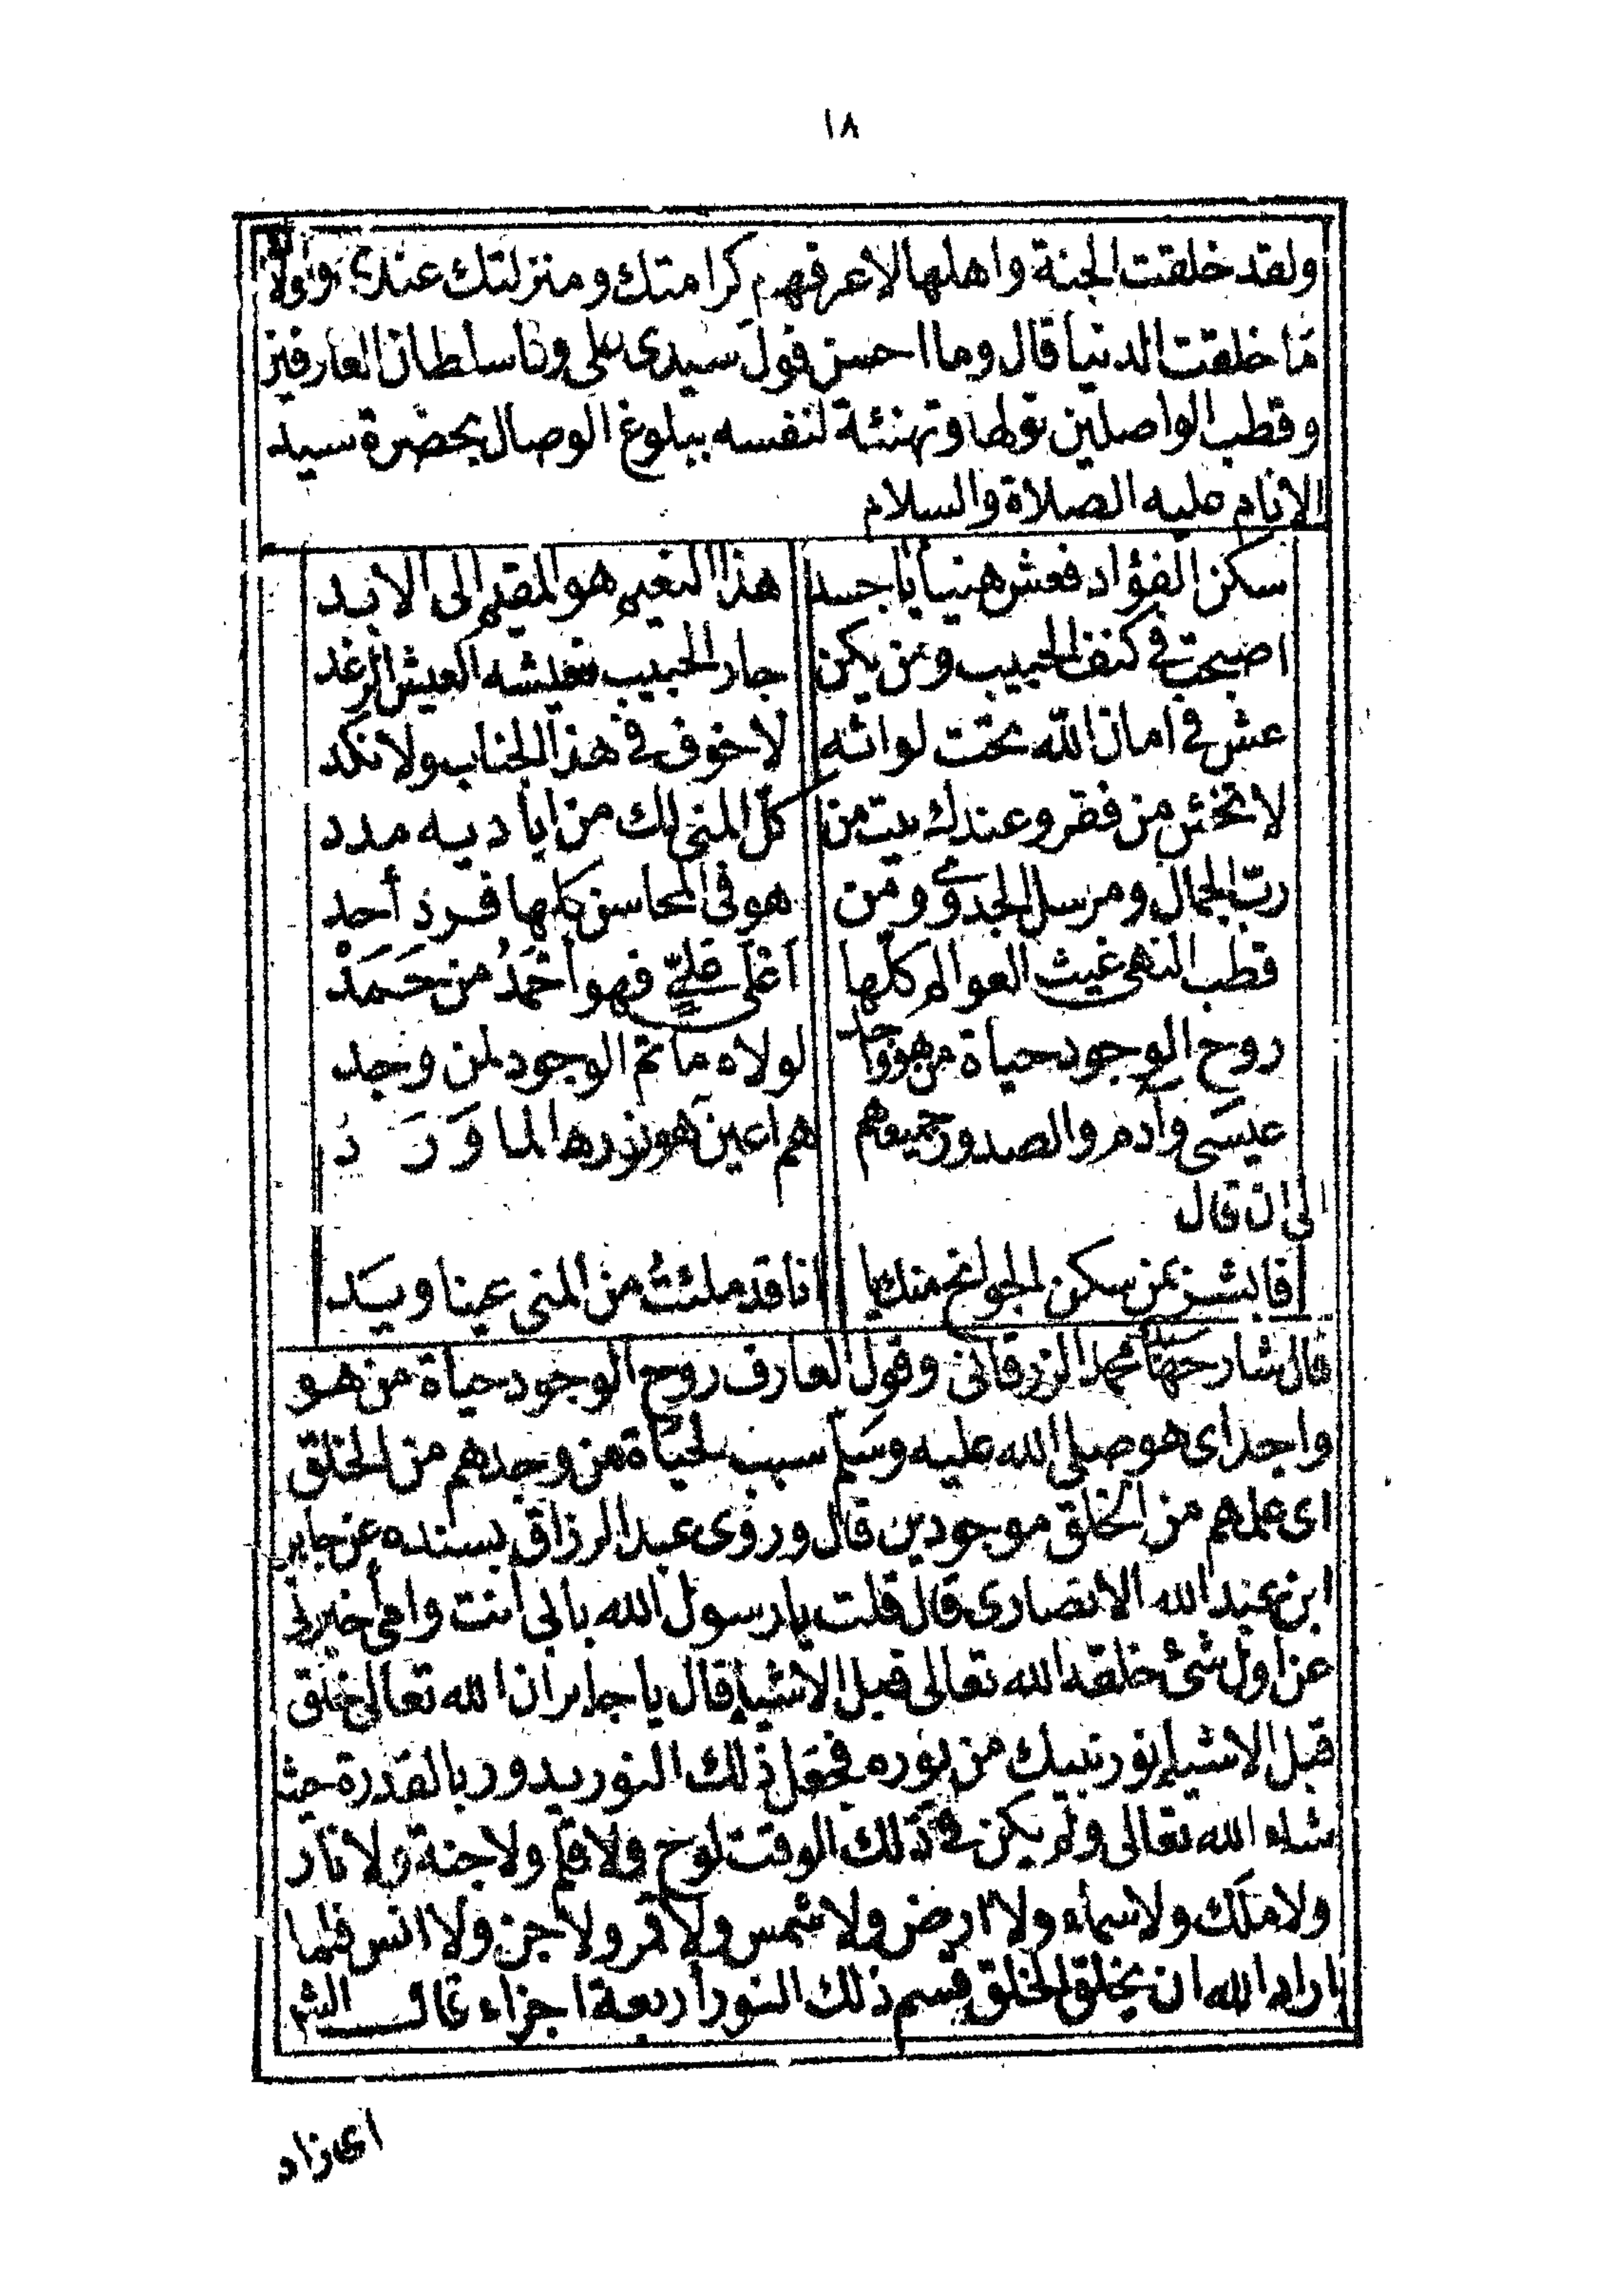 ١٨
ولقد خلقت الجنة واهلها لاعرفهم كرامتك ومنزلتك عندى ولولاك
ما خلقت الدنيا قال وما احسن قول سيدى على وفا سلطان العارفين
وقطب الواصلين وتهنئة لنفسه ببلوغ الوصال بحضرة سيد
الانام عليه الصلاة والسلام
سكن الفؤاد فعش هنيا يا جسد هذا النعيم هو المقيم الى الابد
اصبحت فى كنف الحبيب ومن يكن جار الحبيب فعيشه العيش الرغد
عش فى امان الله تحت لوائه لا خوف فى هذا الجناب ولا نكد
لا تخش من فقر وعندك بيت من كلّ المنى لك من اياديه مدد
ربّ الجمال ومرسل الجدوى ومن هو فى المحاسن كلها فرد أحد
قطب النهى غيث العوالم كلّها أعلى علىّ فهو أحْمَدُ من حَمَدْ
روح الوجود حياة من هو واجد لولاه ما تم الوجود لمن وجد
عيسَى وآدم والصدور جميعهم هم اعين هو نورها لما وَرَدْ
الى ان قال
فابشر بمن سكن الجوانح منك يا انا قد ملئتُ من المنى عينا ويَد
قال شارحها محمد الزرقانى وقول العارف روح الوجود حياة من هو
واجد اى هو صلى الله عليه وسلم سبب لحياة من وجدهم من الخلق
اى علمهم من الخلق موجودين قال وروى عبد الرزاق بسنده عن جابر
ابن عبد الله الانصارى قال قلت يا رسول الله بابى أنت وامى أخبرنى
عن اول شئ خلقه الله تعالى قبل الاشياء قال يا جابر ان الله تعالى خلق
قبل الاشياء نور نبيك من نوره فجعل ذلك النور يدور بالقدرة حيث
شاء الله تعالى ولم يكن فى ذلك الوقت لوح ولا قلم ولا جنة ولا نار
ولا ملك ولا سماء ولا ارض ولا شمس ولا قمر ولا جن ولا انس فلما
اراد الله ان يخلق الخلق قسم ذلك النور أربعة اجزاء قال الشم
اى زاد